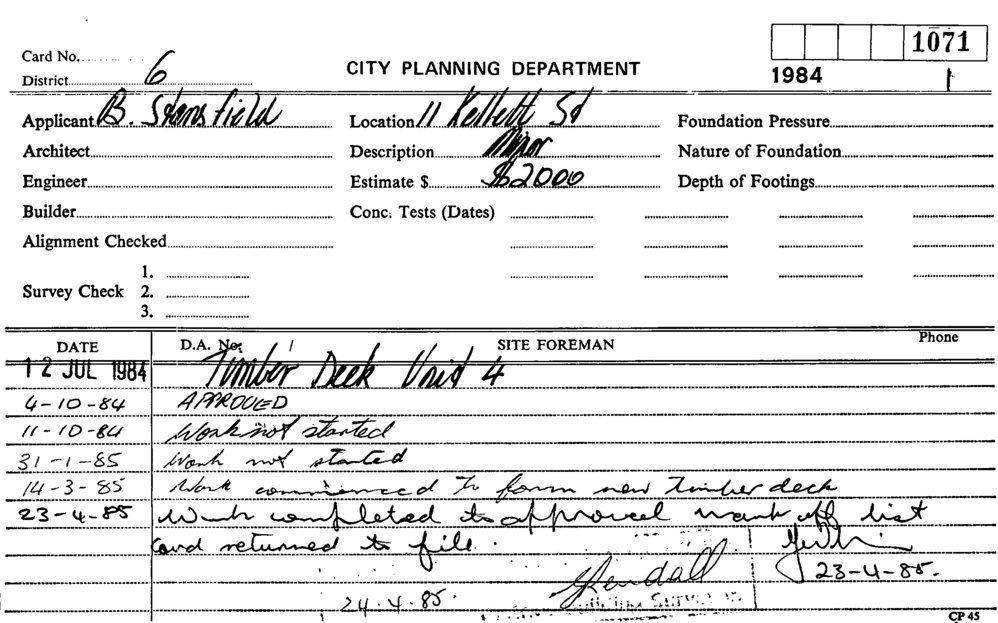 1071
Card No.
District 6
CITY PLANNING DEPARTMENT
1984 1
Applicant B. Stansfield Location 11 Kellett St Foundation Pressure
Architect Description Minor Nature of Foundation
Engineer Estimate $ $2000 Depth of Footings
Builder Conc. Tests (Dates)
Alignment Checked
1.
Survey Check 2.
3.
DATE D.A. No. SITE FOREMAN Phone
12 JUL 1984 Timber Deck Unit 4
4-10-84 APPROVED
11-10-84 Work not started
31-1-85 Work not started
14-3-85 Work commenced to form new timber deck
23-4-85 Work completed to approval mark off list
Card returned to file.
23-4-85.
24.4.85.
CP 45